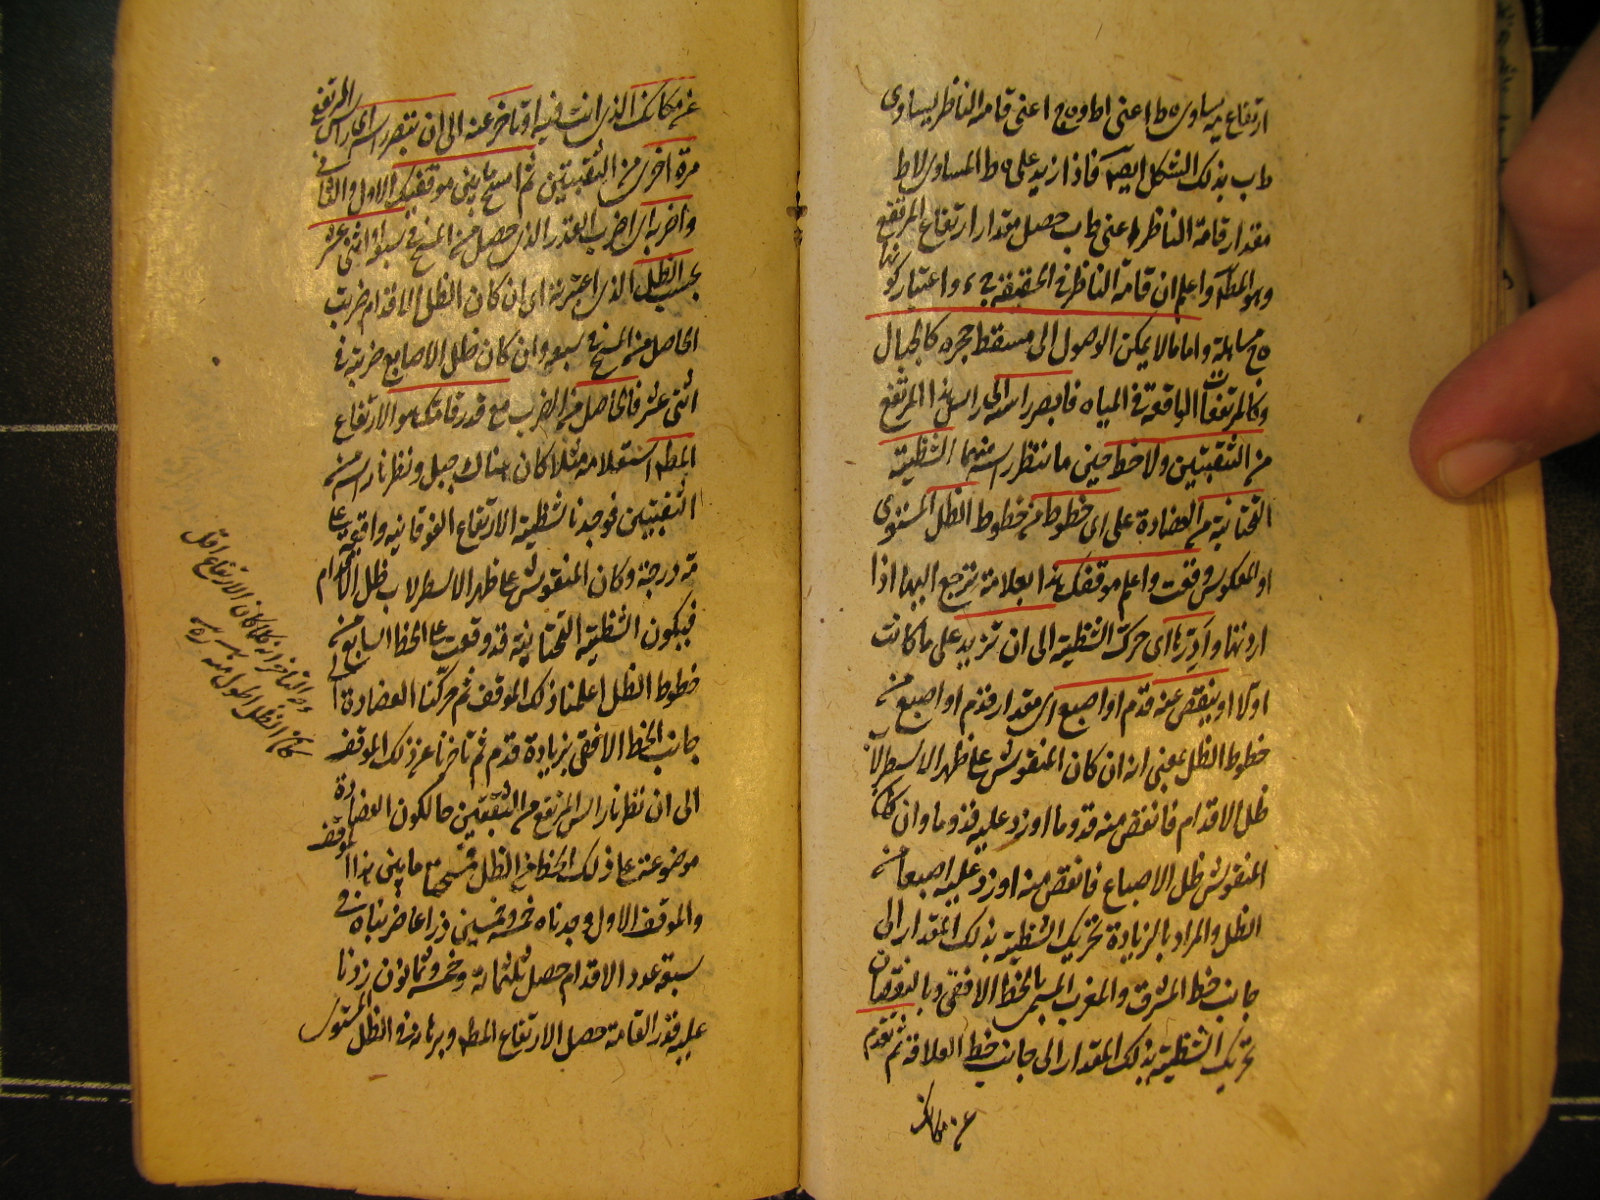 ارتفاع يه يساوى ه ط اعنى اط و ه ح اعنى قامة الناظر يساوى
ط ب بذلك الشكل ايضا فاذا زيد على ه ط المساوى لاط
مقدار قامة الناظر اعنى ط ب حصل مقدار ارتفاع المرتفع
وهو المط واعلم ان قامة الناظر فى الحقيقة ى ء واعتبار كونها
ه ح مساهلة واما ما لا يمكن الوصول الى مسقط حجره كالجبال
وكالمرتفعات الواقعة فى المياه فابصر راسه اى راس هذا المرتفع
من الثقبتين ولاحظ حين ما تنظر راسه منهما الشظية
التحتانية من العضادة على اى خطوط من خطوط الظل المستوى
او المعكوس وقعت واعلم موقفك هذا بعلامة ترجع اليها اذا
اردتها وادرها اى حرك الشظية الى ان تزيد على ما كانت
اولا او ينقص عنه قدم او اصبع اى مقدار قدم او اصبع من
خطوط الظل يعنى انه ان كان المنقوش على ظهر الاسطرلاب
ظل الاقدام فانقص منه قدوما او زد عليه قدوما وان كان
المنقوش ظل الاصباع فانقص منه او زد عليه اصبعا من
الظل والمراد بالزيادة تحريك الشظية بذلك المقدار الى
جانب خط المشرق والمغرب المسمى بالخط الافقى وبالنقصان
تحريك الشظية بذلك المقدار الى جانب خط العلاقة ثم تقدم
عن مكانك
عن مكانك الذى انت فيه او تاخر عنه الى ان تبصر راسه اى راس المرتفع
مرة اخرى من الثقبتين ثم امسح ما بين موقفيك الاول والثانى
واضربه اى اضرب القدر الذى حصل من المسح فى سبعة او اثنى عشر
بحسب الظل الذى اعتبرته اى ان كان الظل الاقدام ضربت
الحاصل من المسح فى سبعة وان كان ظل الاصابع ضربته فى
اثنى عشر فالحاصل من الضرب مع قدر قامتك هو الارتفاع
المط استعلامه مثلا كان هناك جبل ونظرنا راسه من
الثقبتين فوجدنا شظية الارتفاع الفوقانية واقعة على
مه درجة وكان المنقوش على ظهر الاسطرلاب ظل الاقدام
فيكون الشظية التحتانية قد وقعت على الخط السابع من
خطوط الظل اعلمنا ذلك الموقف ثم حركنا العضادة الى
جانب الخط الافقى بزيادة قدم ثم تاخرنا عن ذلك الموقف
الى ان نظرنا راس المرتفع من الثقبتين حال كون العضادة
موضوعة على ذلك الخط من الظل فمسحنا ما بين هذا الموقف
والموقف الاول وجدناه خمسة وخمسين ذراعا ضربناه فى
سبعة عدد الاقدام حصل ثلثمائة وخمسة وثمانون زدنا
عليه قدر القامة حصل الارتفاع المط وبرهانه فى الظل المستوى
وجه التاخر انه كلما كان الارتفاع اقل
كان الظل اطول منه